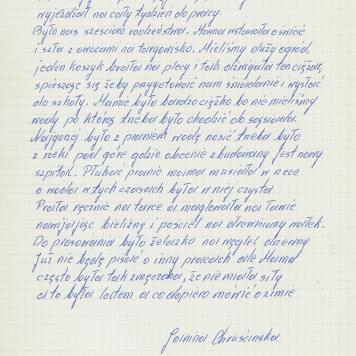 wyjeżdżał na cały tydzień do pracy.
Było nas sześcioro rodzeństwa. Mama wstawała o świcie
i szła z owocami na targowisko. Mieliśmy duży ogród,
jeden koszyk brała na plecy i tak dźwigała ten ciężar,
spiesząc się żeby przygotować nam śniadanie i wysłać
do szkoły. Mamie było bardzo ciężko bo nie mieliśmy
wody po którą trzeba było chodzić do sąsiada.
Najgorzej było z praniem wodę nosić trzeba było
z rzeki pod górę gdzie obecnie zbudowany jest nowy
szpital. Płukać pranie mama musiała w rzece
a woda w tych czasach była w niej czysta
Prała ręcznie na tarce a maglowała na
nawijając bieliznę i pościel na drewniany wałek.
Do prasowania było żelazko na węgiel drzewny
Już nie będę pisać o inny pracach ale Mama
często była tak zmęczona, że nie miała siły
a to było latem a co dopiero mówić o zimie
Janina